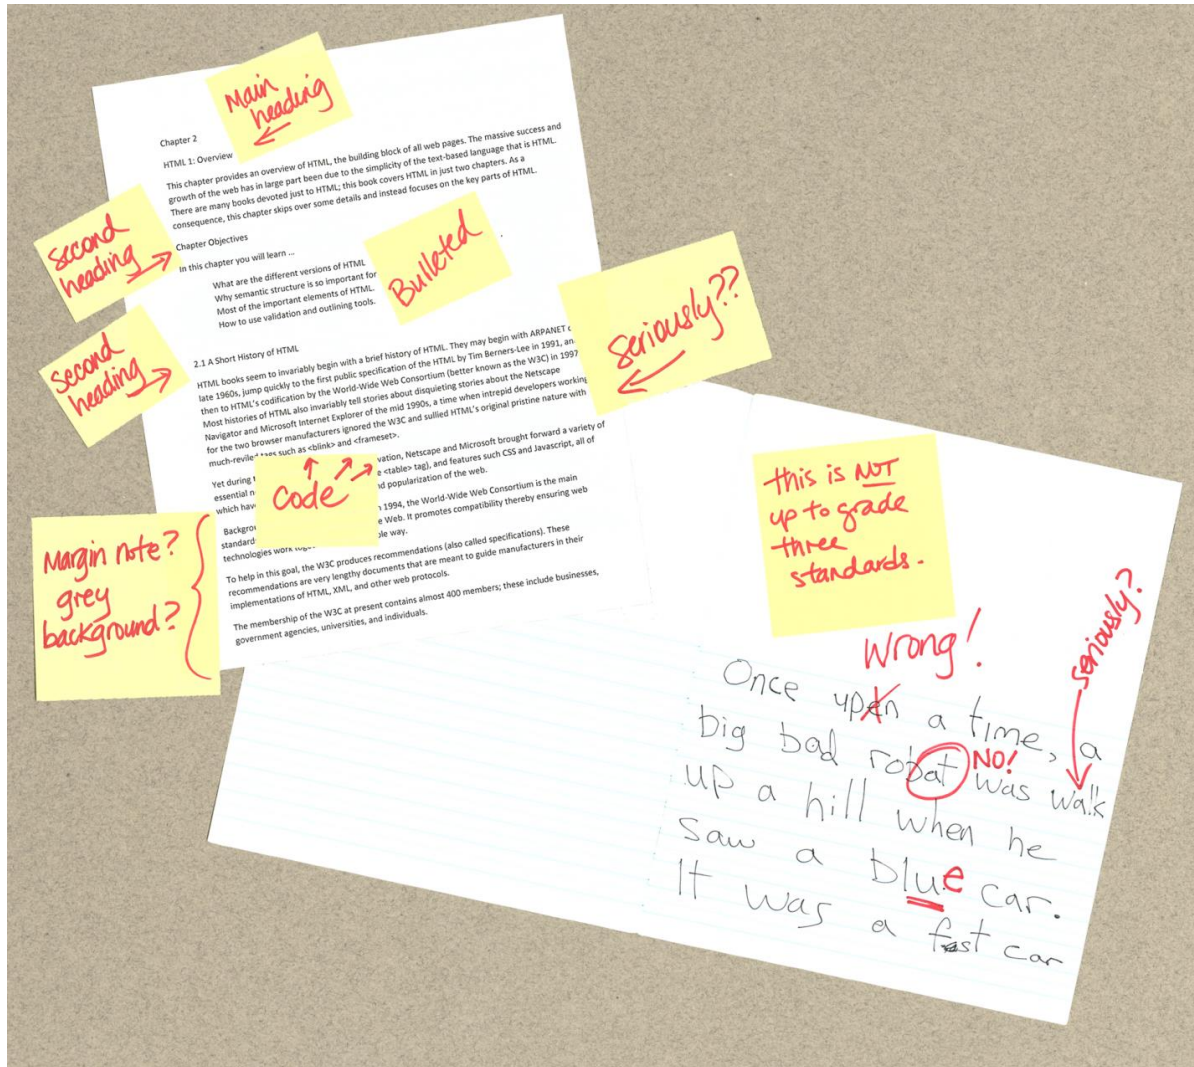 Main
heading
Chapter 2
HTML 1: Overview
This chapter provides an overview of HTML, the building block of all web pages. The massive success and
growth of the web has in large part been due to the simplicity of the text-based language that is HTML.
There are many books devoted just to HTML; this book covers HTML in just two chapters. As a
consequence, this chapter skips over some details and instead focuses on the key parts of HTML.
second
heading
Chapter Objectives
In this chapter you will learn ...
What are the different versions of HTML
Why semantic structure is so important for
Most of the important elements of HTML.
How to use validation and outlining tools.
Bulleted
seriously??
second
heading
2.1 A Short History of HTML
HTML books seem to invariably begin with a brief history of HTML. They may begin with ARPANET
late 1960s, jump quickly to the first public specification of the HTML by Tim Berners-Lee in 1991, an
then to HTML's codification by the World-Wide Web Consortium (better known as the W3C) in 1997
Most histories of HTML also invariably tell stories about disquieting stories about the Netscape
Navigator and Microsoft Internet Explorer of the mid 1990s, a time when intrepid developers working
for the two browser manufacturers ignored the W3C and sullied HTML's original pristine nature with
much-reviled tags such as <blink> and <frameset>.
Yet during vation, Netscape and Microsoft brought forward a variety of
essential <table> tag), and features such CSS and Javascript, all of
which have d popularization of the web.
Code
Backgrou 1994, the World-Wide Web Consortium is the main
standard Web. It promotes compatibility thereby ensuring web
technologies work ple way.
To help in this goal, the W3C produces recommendations (also called specifications). These
recommendations are very lengthy documents that are meant to guide manufacturers in their
implementations of HTML, XML, and other web protocols.
The membership of the W3C at present contains almost 400 members; these include businesses,
government agencies, universities, and individuals.
Margin note?
grey
background?
this is NOT
up to grade
three
standards.
Wrong!
seriously?
Once upen a time, a
big bad robat was walk
NO!
up a hill when he
saw a blue car.
It was a fast car